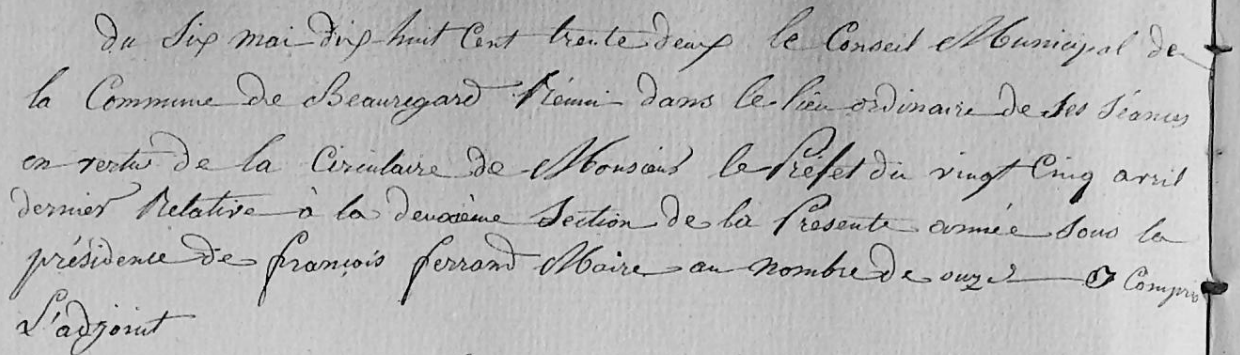 du Six mai dix huit Cent trente deux le Conseil Municipal de
la Commune de Beauregard Réuni dans le lieu ordinaire de ses séances
en vertu de la Circulaire de Monsieur le Préfet du vingt Cinq avril
dernier Relative à la deuxième Section de la Presente année sous la
présidence de françois ferrand Maire au nombre de onze y Compris
L'adjoint